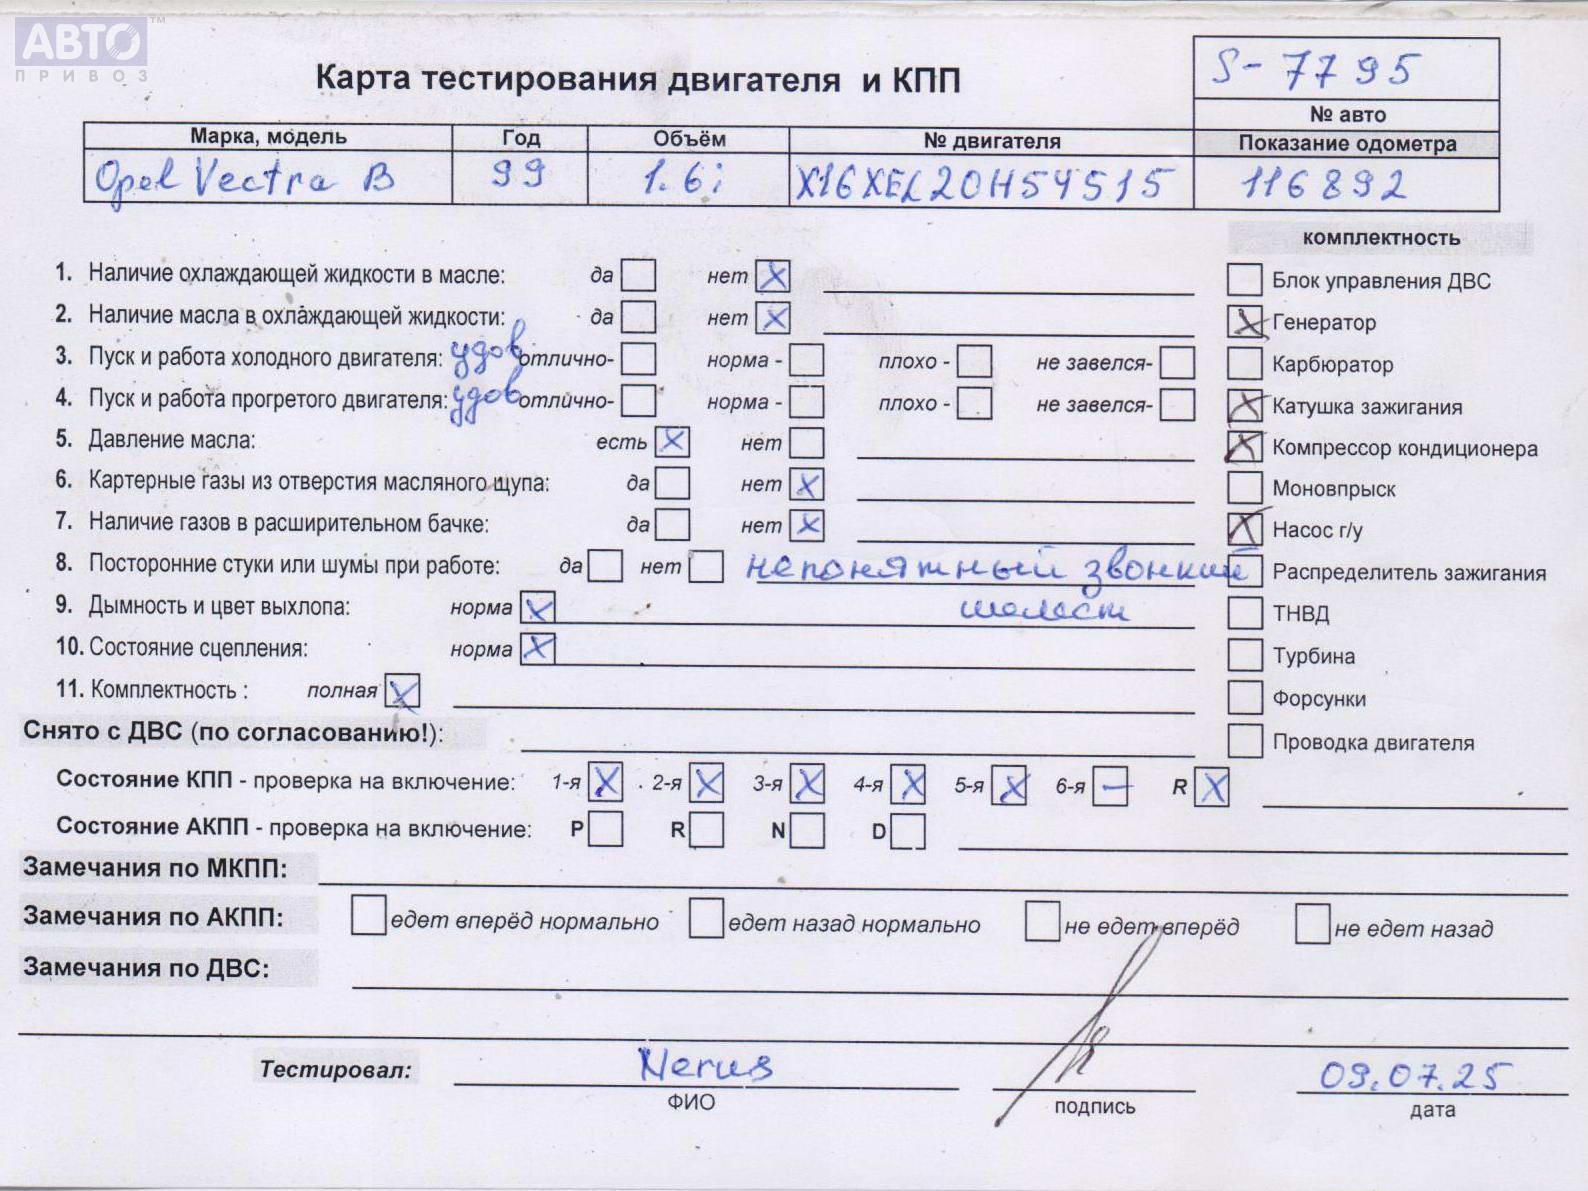 АВТО™
ПРИВОЗ
Карта тестирования двигателя и КПП
S-7795
№ авто
Марка, модель Год Объём № двигателя Показание одометра
Opel Vectra B 99 1.6i X16XEL20H54515 116892
комплектность
1. Наличие охлаждающей жидкости в масле: да нет X
Блок управления ДВС
2. Наличие масла в охлаждающей жидкости: да нет X
X Генератор
3. Пуск и работа холодного двигателя: удов отлично- норма - плохо - не завелся-
Карбюратор
4. Пуск и работа прогретого двигателя: удов отлично- норма - плохо - не завелся-
X Катушка зажигания
5. Давление масла: есть X нет
X Компрессор кондиционера
6. Картерные газы из отверстия масляного щупа: да нет X
Моновпрыск
7. Наличие газов в расширительном бачке: да нет X
X Насос г/у
8. Посторонние стуки или шумы при работе: да нет непонятный звонкий
Распределитель зажигания
9. Дымность и цвет выхлопа: норма X шелест
ТНВД
10. Состояние сцепления: норма X
Турбина
11. Комплектность : полная X
Форсунки
Снято с ДВС (по согласованию!):
Проводка двигателя
Состояние КПП - проверка на включение: 1-я X 2-я X 3-я X 4-я X 5-я X 6-я — R X
Состояние АКПП - проверка на включение: P R N D
Замечания по МКПП:
Замечания по АКПП: едет вперёд нормально едет назад нормально не едет вперёд не едет назад
Замечания по ДВС:
Тестировал: 09.07.25
ФИО подпись дата